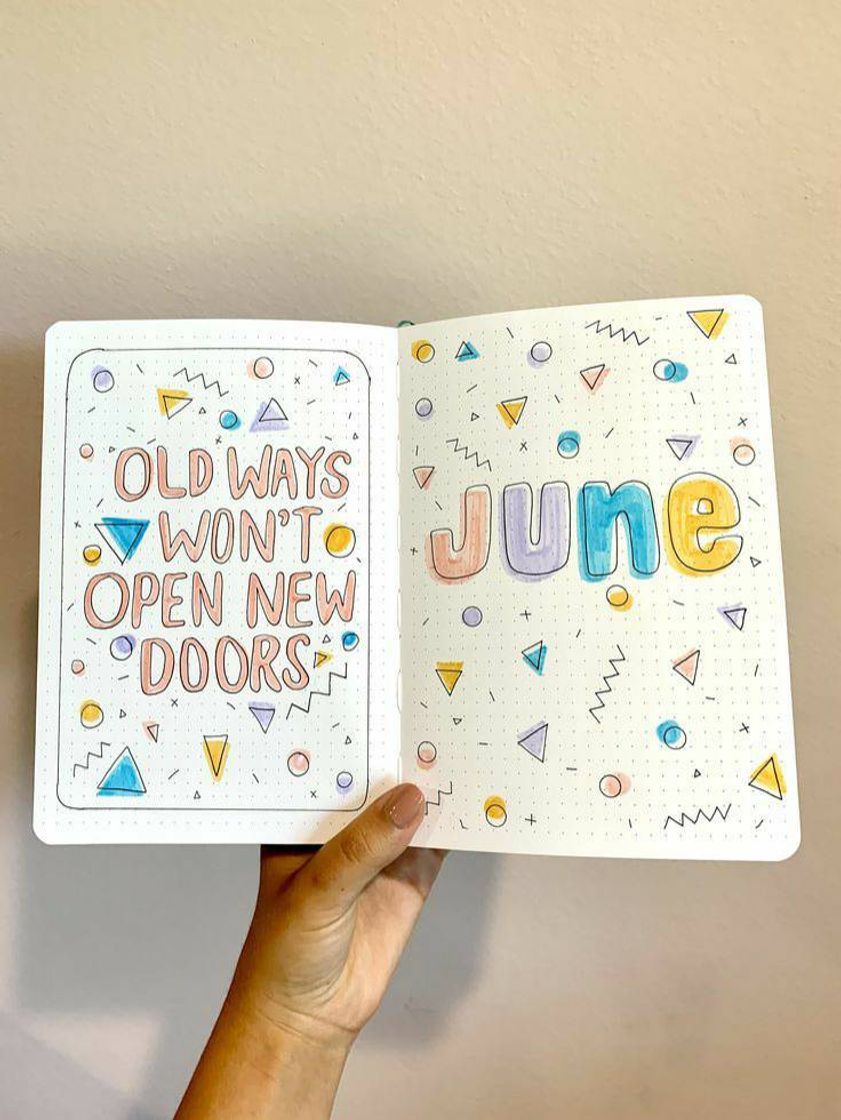 OLD WAYS
WON'T
OPEN NEW
DOORS
June